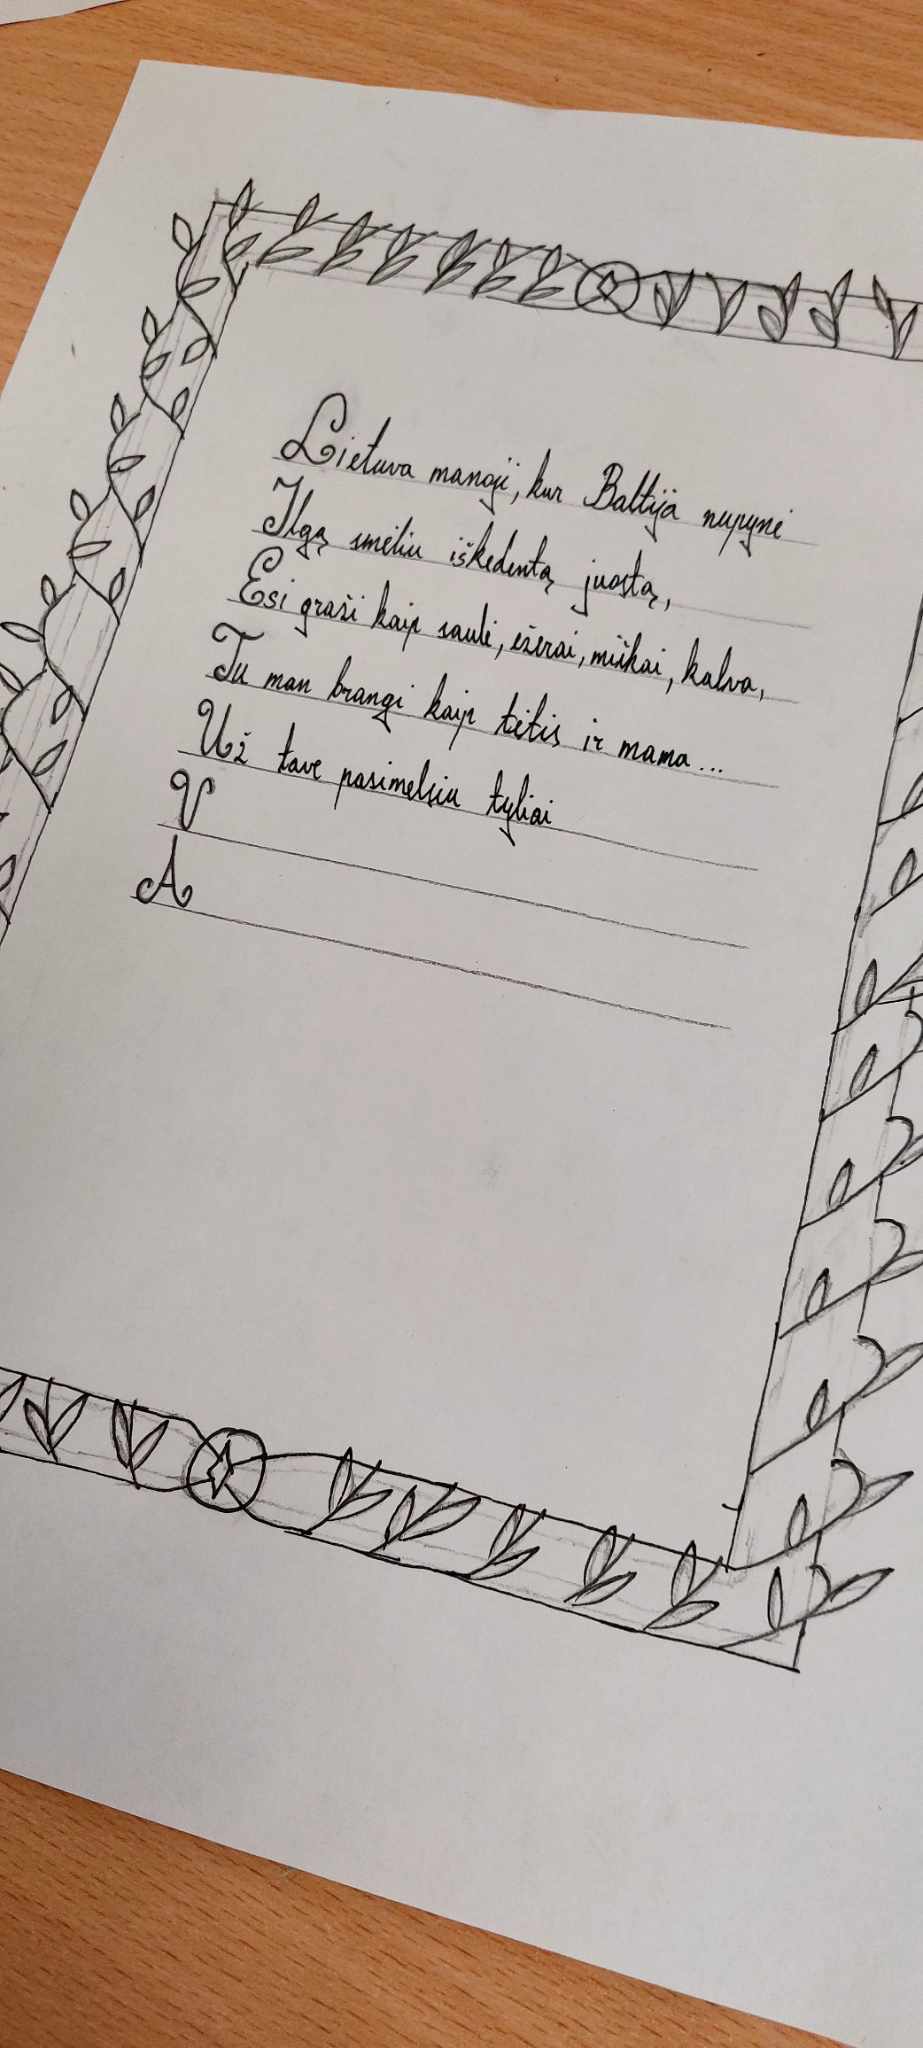 Lietuva manoji, kur Baltija nupynė
Ilgą smėliu iškedentą juostą,
Esi graži kaip saulė, ežerai, miškai, kalva,
Tu man brangi kaip tėtis ir mama...
Už tave pasimelsiu tyliai
V
A